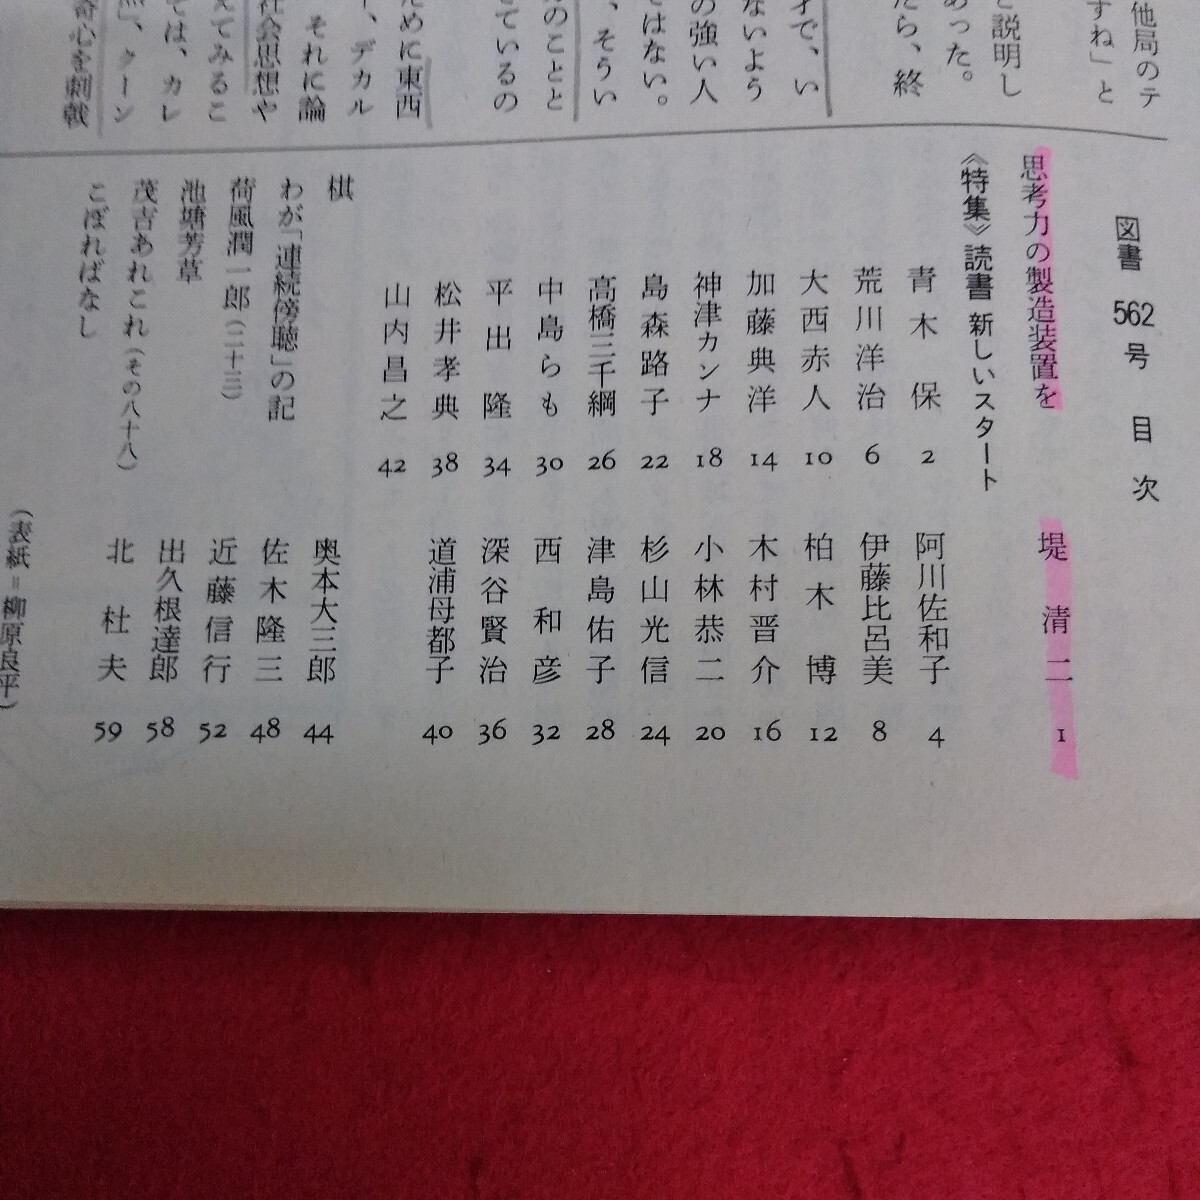 他局のテ
すね」と
と説明し
あった。
たら、終
才で、い
ないよう
の強い人
ではない。
、そうい
のことと
ているの
ために東西
、デカル
それに論
社会思想や
えてみるこ
では、カレ
」、クーン
奇心を刺戟
図書 562号 目次
思考力の製造装置を 堤清二 1
《特集》読書 新しいスタート
青木保 2 阿川佐和子 4
荒川洋治 6 伊藤比呂美 8
大西赤人 10 柏木博 12
加藤典洋 14 木村晋介 16
神津カンナ 18 小林恭二 20
島森路子 22 杉山光信 24
高橋三千綱 26 津島佑子 28
中島らも 30 西和彦 32
平出隆 34 深谷賢治 36
松井孝典 38 道浦母都子 40
山内昌之 42
棋 奥本大三郎 44
わが「連続傍聴」の記 佐木隆三 48
荷風潤一郎(二十三) 近藤信行 52
池塘芳草 出久根達郎 58
茂吉あれこれ(その八十八) 北杜夫 59
こぼればなし
(表紙=柳原良平)